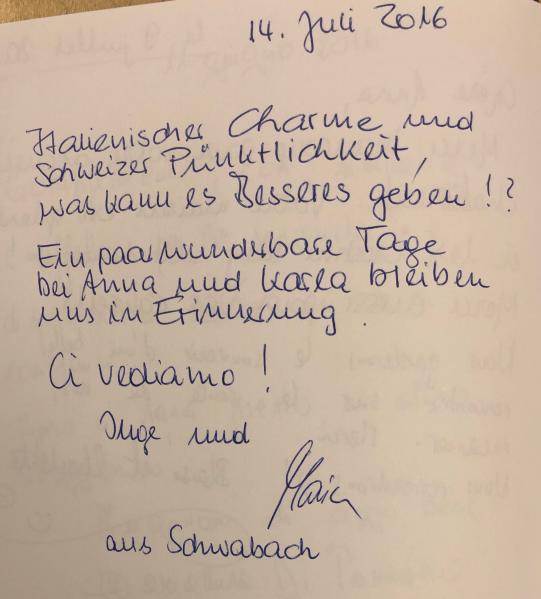 14. Juli 2016
Italienischer Charme und
Schweizer Pünktlichkeit,
was kann es Besseres geben !?
Ein paar wunderbare Tage
bei Anna und Karla bleiben
uns in Erinnerung.
Ci vediamo !
Inge und
aus Schwabach